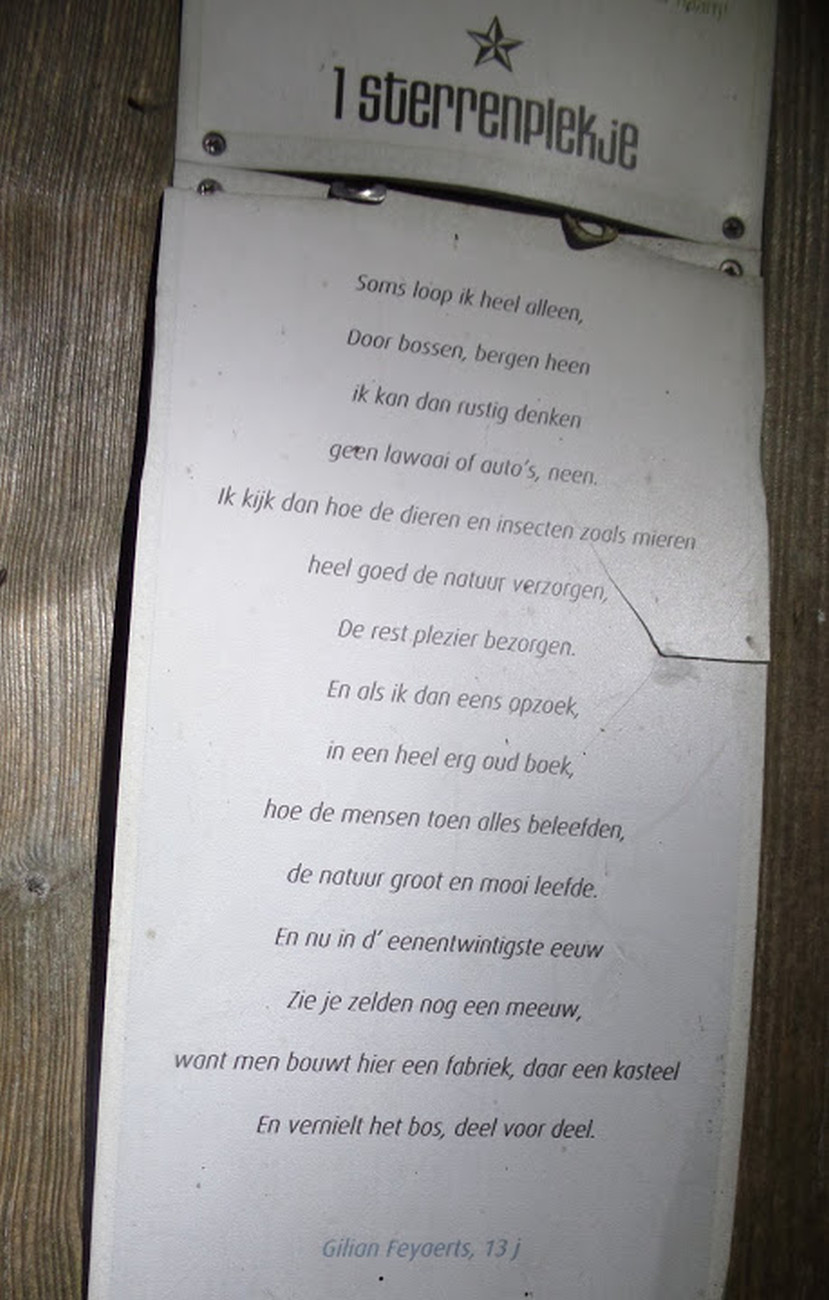 1 sterrenplekje
Soms loop ik heel alleen,
Door bossen, bergen heen
ik kan dan rustig denken
geen lawaai of auto's, neen.
Ik kijk dan hoe de dieren en insecten zoals mieren
heel goed de natuur verzorgen,
De rest plezier bezorgen.
En als ik dan eens opzoek,
in een heel erg oud boek,
hoe de mensen toen alles beleefden,
de natuur groot en mooi leefde.
En nu in d' eenentwintigste eeuw
Zie je zelden nog een meeuw,
want men bouwt hier een fabriek, daar een kasteel
En vernielt het bos, deel voor deel.
Gilian Feyaerts, 13 j